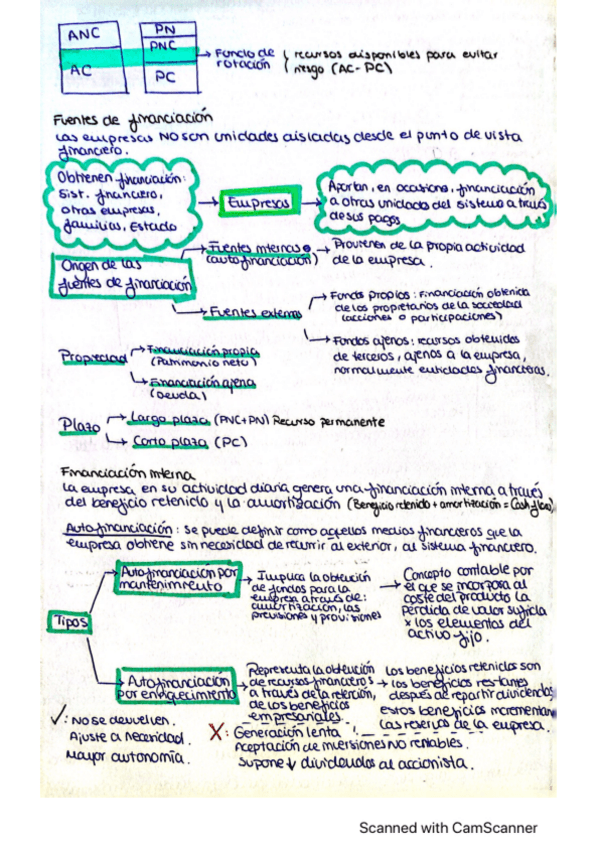 ANC
PN
PNC
AC
PC
Fondo de rotación
recursos disponibles para evitar
riesgo (AC - PC)
Fuentes de financiación
Las empresas NO son unidades aisladas desde el punto de vista
financiero.
Obtienen financiación:
Sist. financiero,
otras empresas,
familias, Estado
Empresas
Aportan, en ocasiones, financiación
a otras unidades del sistema a través
de sus pagos
Origen de las
fuentes de financiación
Fuentes internas o
(autofinanciación)
Provienen de la propia actividad
de la empresa.
Fuentes externas
Fondos propios: Financiación obtenida
de los propietarios de la sociedad
(acciones o participaciones)
Fondos ajenos: recursos obtenidos
de terceros, ajenos a la empresa,
normalmente entidades financieras.
Propiedad
Financiación propia
(Patrimonio neto)
Financiación ajena
(Deuda)
Plazo
Largo plazo (PNC+PN) Recurso permanente
Corto plazo (PC)
Financiación interna
La empresa en su actividad diaria genera una financiación interna a través
del beneficio retenido y la amortización (Beneficio retenido + amortización = Cash flow)
Autofinanciación: Se puede definir como aquellos medios financieros que la
empresa obtiene sin necesidad de recurrir al exterior, al sistema financiero.
Tipos
Autofinanciación por
mantenimiento
Implica la obtención
de fondos para la
empresa a través de:
amortización, las
previsiones y provisiones
Concepto contable por
el que se incorpora al
coste del producto la
pérdida de valor sufrida
x los elementos del
activo fijo.
Autofinanciación
por enriquecimiento
Representa la obtención
de recursos financieros
a través de la retención,
de los beneficios
empresariales.
Los beneficios retenidos son
los beneficios restantes
después de repartir dividendos
estos beneficios incrementan
las reservas de la empresa.
✓: No se devuelven.
Ajuste a necesidad.
Mayor autonomía.
X: Generación lenta
Aceptación de inversiones NO rentables.
Supone ↓ dividendos al accionista.
Scanned with CamScanner